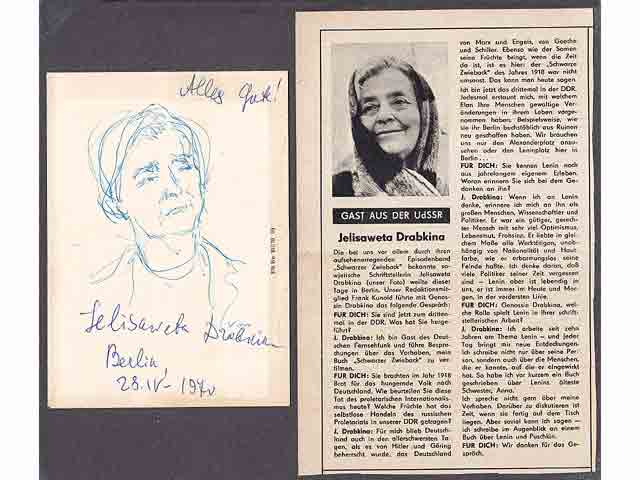 Alles Gute!
Jelisaweta Drabkina
Berlin
28.IV-1970
GAST AUS DER UdSSR
Jelisaweta Drabkina
Die bei uns vor allem durch ihren
aufsehenerregenden Episodenband
„Schwarzer Zwieback" bekannte so-
wjetische Schriftstellerin Jelisaweta
Drabkina (unser Foto) weilte dieser
Tage in Berlin. Unser Redaktionsmit-
glied Frank Kunold führte mit Genos-
sin Drabkina das folgende Gespräch:
FÜR DICH: Sie sind jetzt zum dritten-
mal in der DDR. Was hat Sie herge-
führt?
J. Drabkina: Ich bin Gast des Deut-
schen Fernsehfunk und führe Bespre-
chungen über das Vorhaben, mein
Buch „Schwarzer Zwieback" zu ver-
filmen.
FÜR DICH: Sie brachten im Jahr 1918
Brot für das hungernde Volk nach
Deutschland. Wie beurteilen Sie diese
Tat des proletarischen Internationalis-
mus heute? Welche Früchte hat das
selbstlose Handeln des russischen
Proletariats in unserer DDR getragen?
J. Drabkina: Für mich blieb Deutsch-
land auch in den allerschwersten Ta-
gen, als es von Hitler und Göring
beherrscht wurde, das Deutschland
von Marx und Engels, von Goethe
und Schiller. Ebenso wie der Samen
seine Früchte bringt, wenn die Zeit
da ist, ist es hier: der „Schwarze
Zwieback" des Jahres 1918 war nicht
umsonst. Das kann man heute sagen.
Ich bin jetzt das drittemal in der DDR.
Jedesmal erstaunt mich, mit welchem
Elan Ihre Menschen gewaltige Ver-
änderungen in ihrem Leben vorge-
nommen haben. Beispielsweise, wie
sie ihr Berlin buchstäblich aus Ruinen
neu geschaffen haben. Wir brauchen
uns nur den Alexanderplatz anzu-
sehen oder den Leninplatz hier in
Berlin...
FÜR DICH: Sie kennen Lenin noch
aus jahrelangem eigenem Erleben.
Woran erinnern Sie sich bei dem Ge-
danken an ihn?
J. Drabkina: Wenn ich an Lenin
denke, erinnere ich mich an ihn als
großen Menschen, Wissenschaftler und
Politiker. Er war ein gütiger, gerech-
ter Mensch mit sehr viel Optimismus,
Lebensmut, Frohsinn. Er liebte in glei-
chem Maße alle Werktätigen, unab-
hängig von Nationalität und Haut-
farbe, wie er erbarmungslos seine
Feinde haßte. Ich denke daran, daß
viele Politiker seiner Zeit vergessen
sind – Lenin aber ist lebendig in
uns, er ist immer im Heute und Mor-
gen, in der vordersten Linie.
FÜR DICH: Genossin Drabkina, wel-
che Rolle spielt Lenin in Ihrer schrift-
stellerischen Arbeit?
J. Drabkina: Ich arbeite seit zehn
Jahren am Thema Lenin – und jeder
Tag bringt mir neue Entdeckungen.
Ich schreibe nicht nur über seine Per-
son, sondern auch über die Menschen,
die er kannte, auf die er eingewirkt
hat. So habe ich vor kurzem ein Buch
geschrieben über Lenins älteste
Schwester, Anna.
Ich spreche nicht gern über meine
Vorhaben. Darüber zu diskutieren ist
Zeit, wenn sie fertig auf dem Tisch
liegen. Aber soviel kann ich sagen –
ich schreibe im Augenblick an einem
Buch über Lenin und Puschkin.
FÜR DICH: Wir danken für das Ge-
spräch.